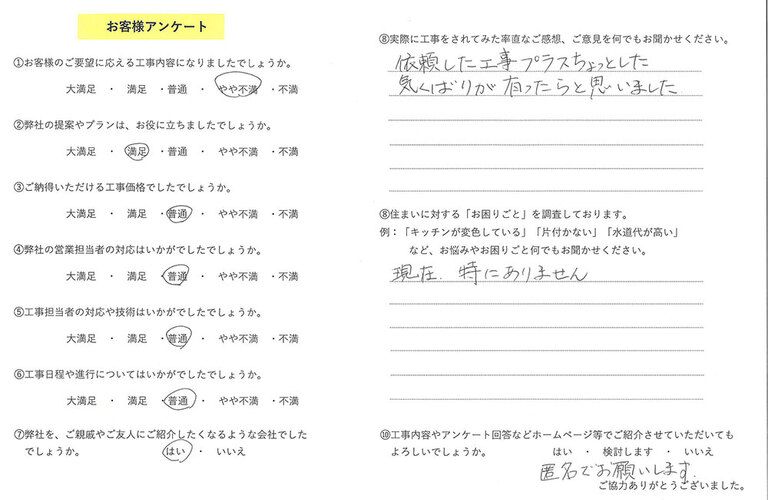 お客様アンケート
①お客様のご要望に応える工事内容になりましたでしょうか。
大満足 ・ 満足 ・普通 ・ やや不満 ・不満
②弊社の提案やプランは、お役に立ちましたでしょうか。
大満足 ・ 満足 ・普通 ・ やや不満 ・不満
③ご納得いただける工事価格でしたでしょうか。
大満足 ・ 満足 ・普通 ・ やや不満 ・不満
④弊社の営業担当者の対応はいかがでしたでしょうか。
大満足 ・ 満足 ・普通 ・ やや不満 ・不満
⑤工事担当者の対応や技術はいかがでしたでしょうか。
大満足 ・ 満足 ・普通 ・ やや不満 ・不満
⑥工事日程や進行についてはいかがでしたでしょうか。
大満足 ・ 満足 ・普通 ・ やや不満 ・不満
⑦弊社を、ご親戚やご友人にご紹介したくなるような会社でした
でしょうか。 はい ・ いいえ
⑧実際に工事をされてみた率直なご感想、ご意見を何でもお聞かせください。
依頼した工事プラスちょっとした
気くばりが有ったらと思いました
⑧住まいに対する「お困りごと」を調査しております。
例：「キッチンが変色している」「片付かない」「水道代が高い」
など、お悩みやお困りごと何でもお聞かせください。
現在.特にありません
⑩工事内容やアンケート回答などホームページ等でご紹介させていただいても
よろしいでしょうか。 はい ・ 検討します ・ いいえ
匿名でお願いします.
ご協力ありがとうございました。